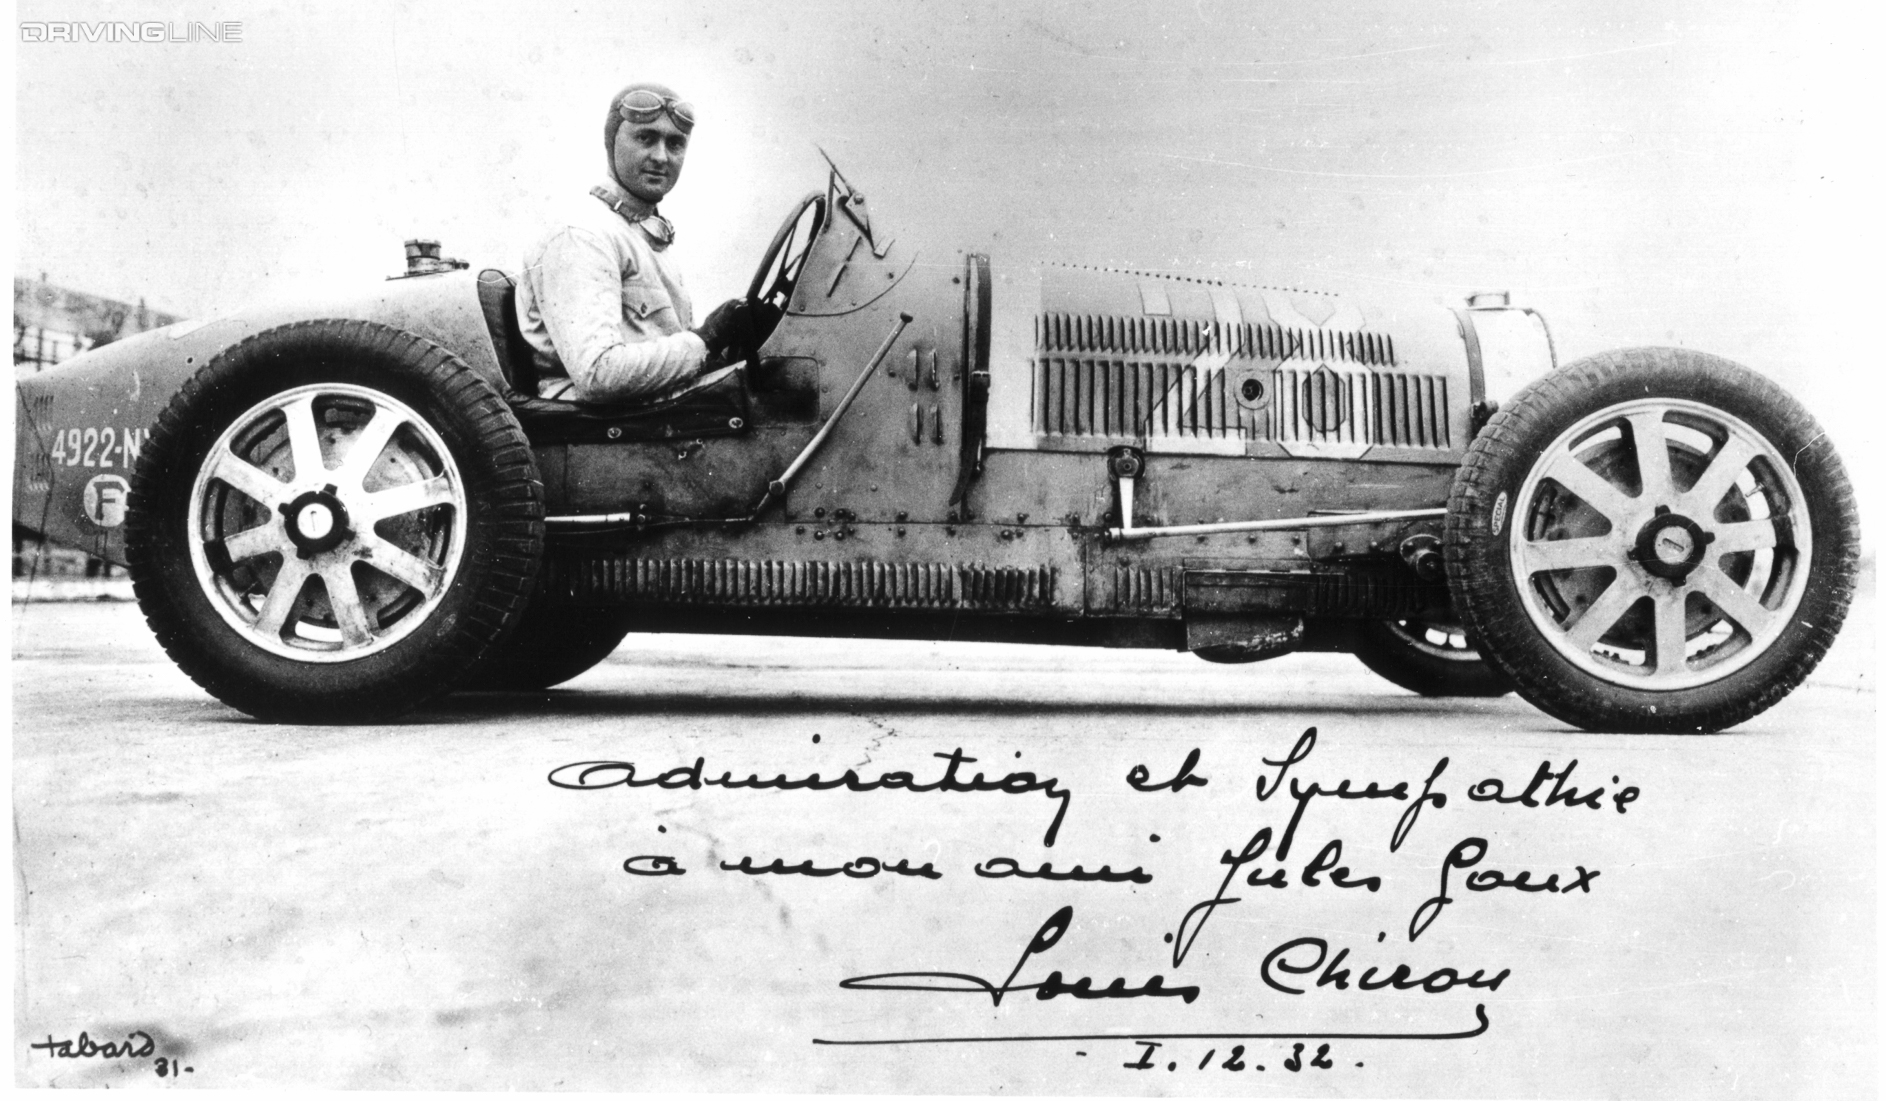 DRIVINGLINE
4922-N
F
40
SPECIAL
admiration et Sympathie
à mon ami Jules Goux
Louis Chiron
- I. 12. 32.
tabard
31-